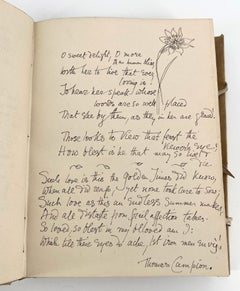 O sweet delight, O more
than human bliss
With her to live that ever
loving is!
To hear her speak, whose
words are so well placed
That she by them, as they in her are graced
Those looks to view that feast the
viewer's eye,
How blest is he that may so live &
die
Such love is this the golden times did know,
When all did reap, yet none took care to sow;
Such love as this an endless Summer makes,
And all distaste from frail affection takes.
So loved, so blest in my beloved am I:
Which till their eyes ache, let iron men envy!
Thomas Campion.